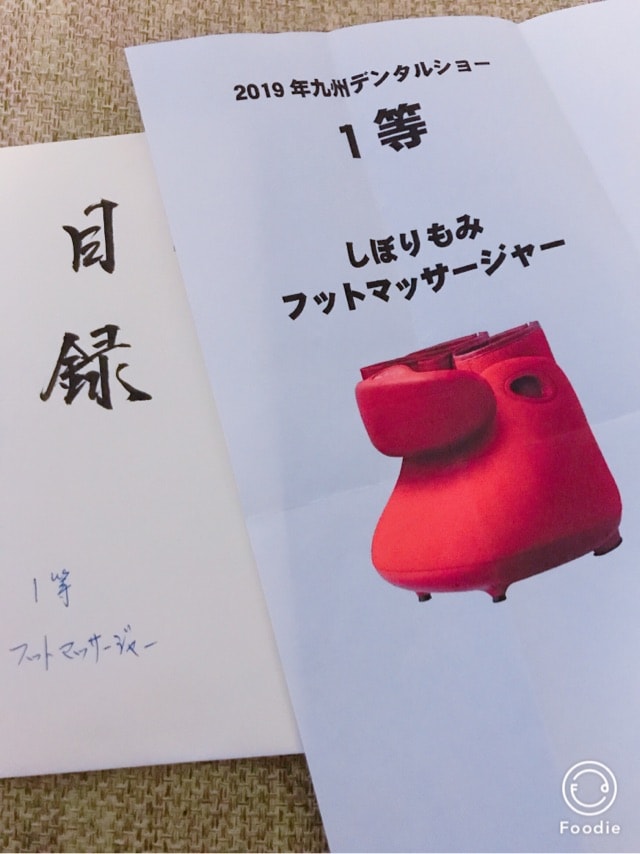 2019年九州デンタルショー
1等
しぼりもみ
フットマッサージャー
目録
1等
フットマッサージャー
Foodie